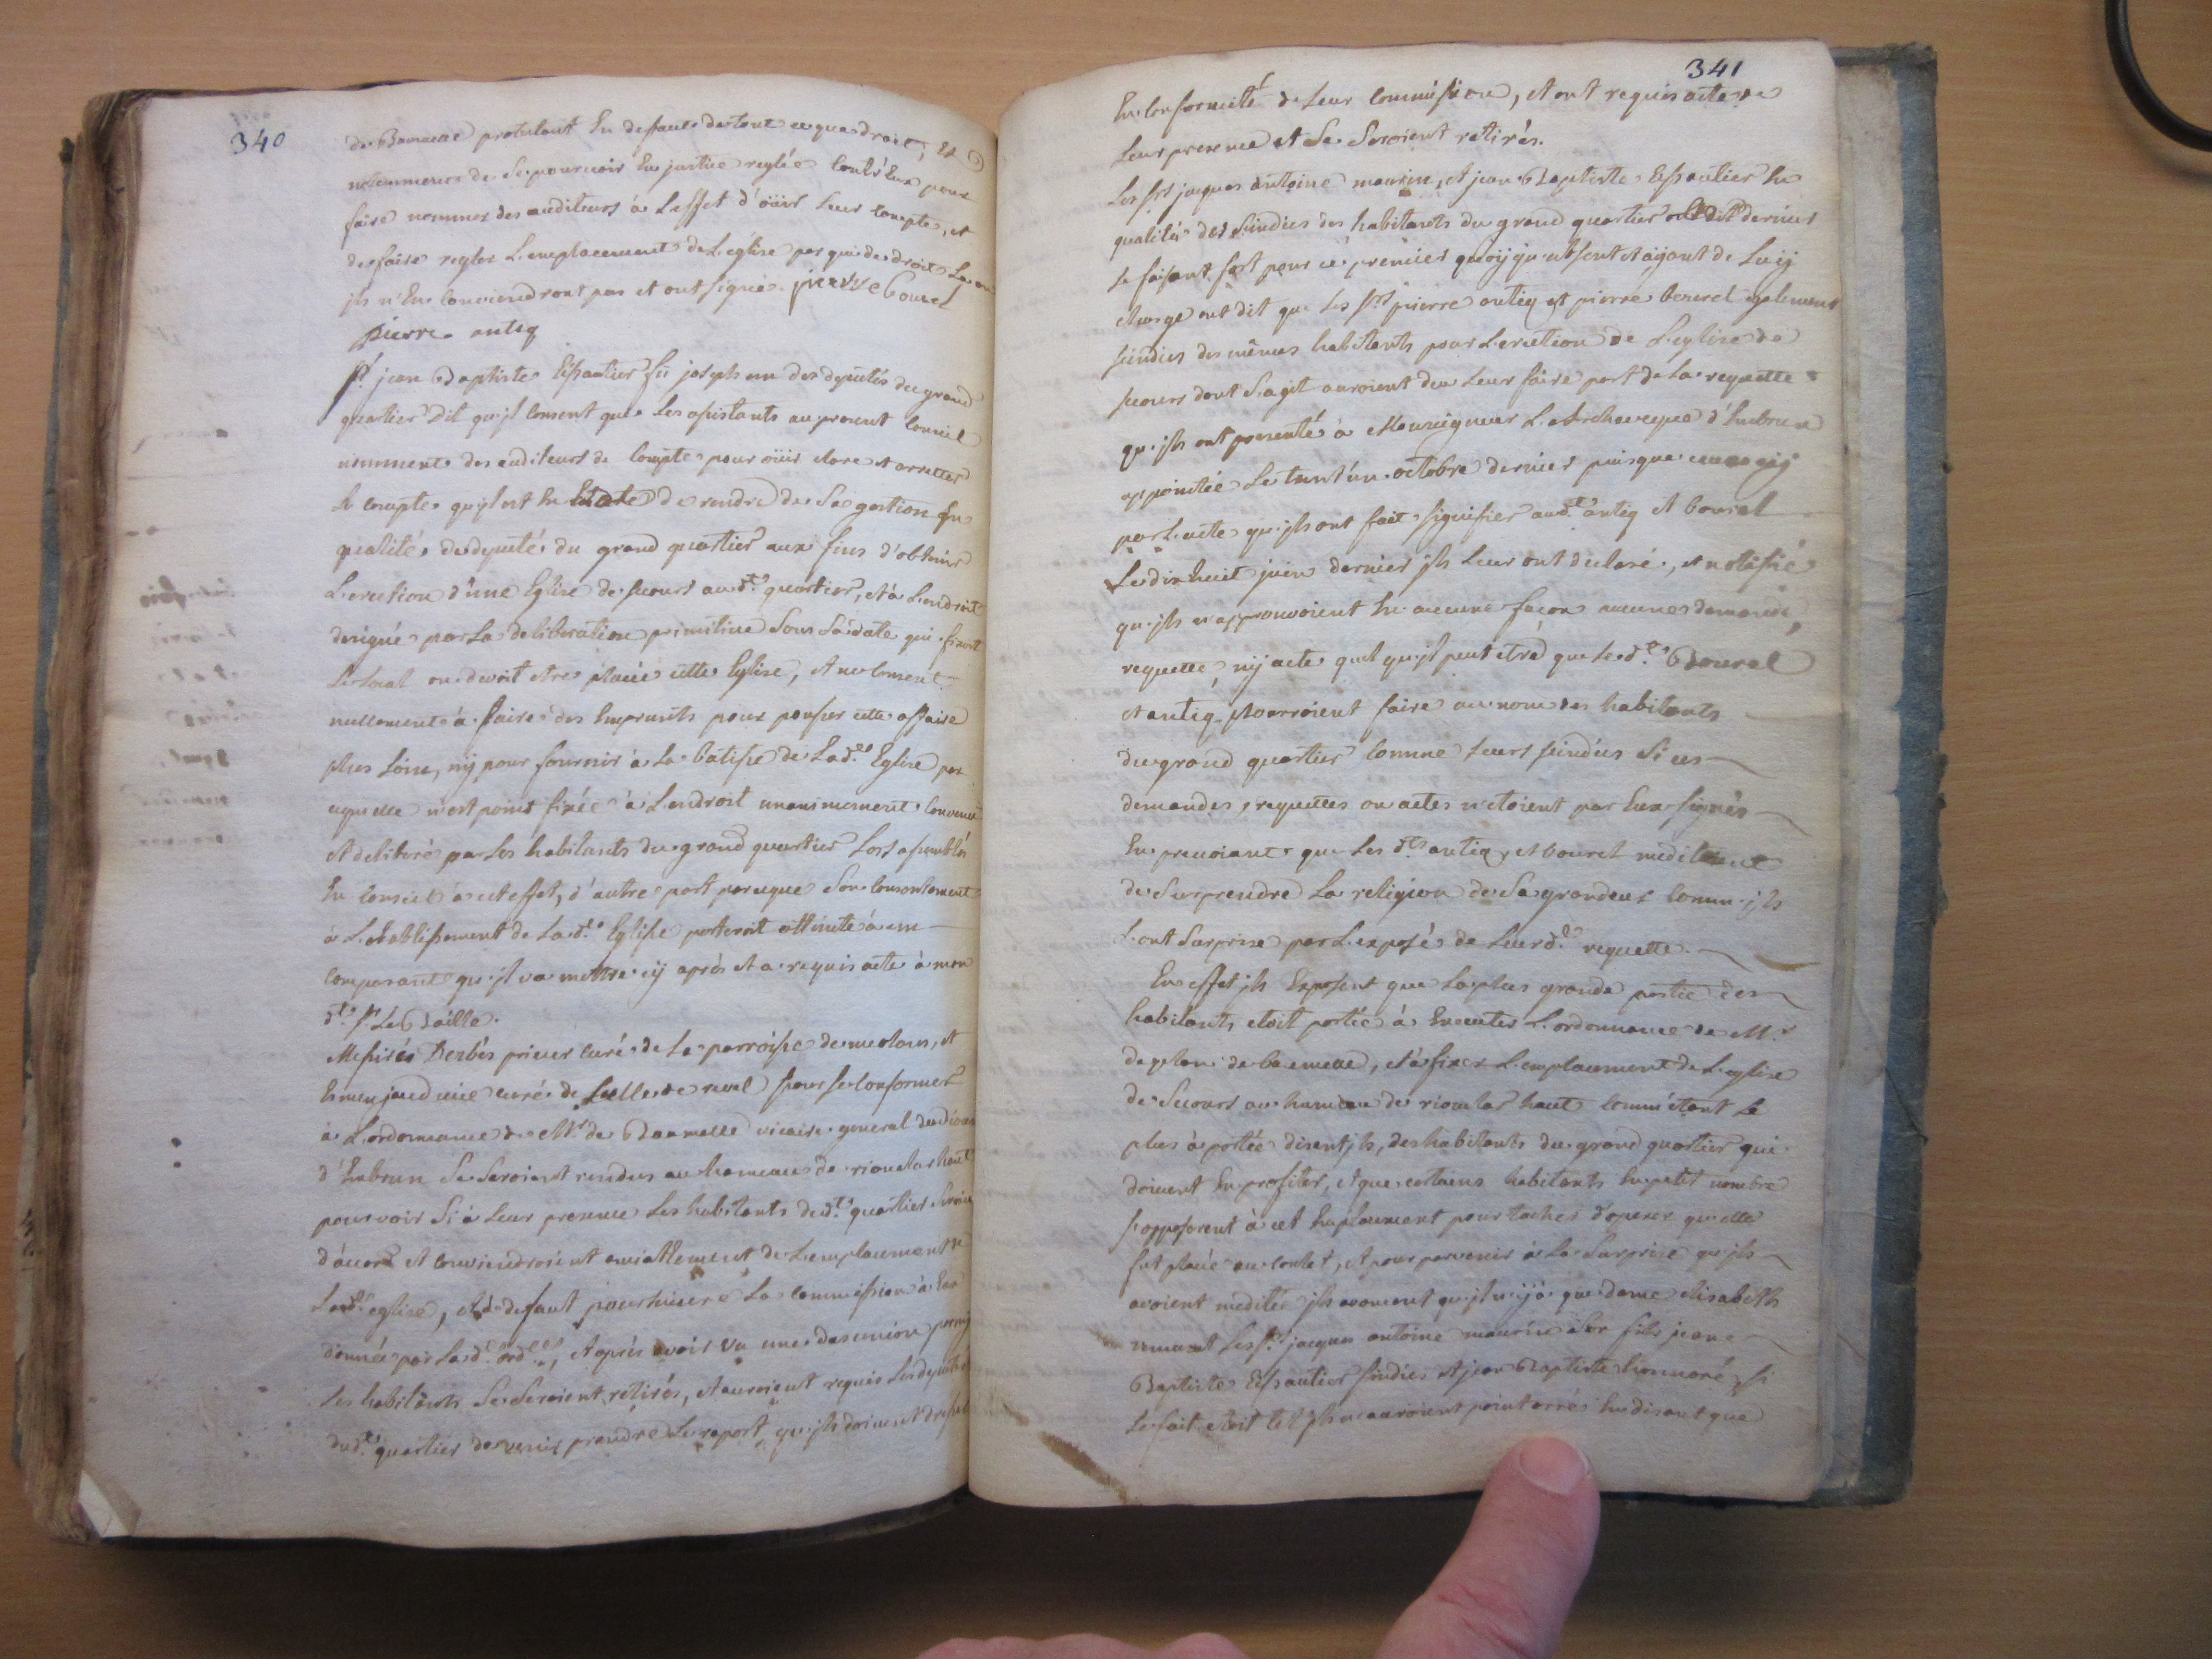 340
de Bamelle protestant En defaut de tout ce que de droit, Et
notamment de Se pourvoir En justice reglée Contr'Eux pour
faire nommer des auditeurs à L'effet d'oüir Leur Compte, et
de faire regler L'emplacement de L'eglise par qui de droit La ou
jls n'En Conviendront pas et ont signé. pierre Bourel
pierre antiq
Sr. jean Baptiste Eissautier fu joseph un des deputés du grand
quartier Dit qu'jl Consent que Les assistants au present Conseil
nomment des auditeurs de Compte pour oüir Clore et arretter
Le Compte qu'jl est En de rendre de Sa gestion En
qualité de deputé du grand quartier aux fins d'obtenir
L'erection d'une Eglise de secours audt. quartier, et à L'endroit
designé par La deliberation primitive Sous Sa date qui fixoit
Le Local ou devoit Etre placée cette Eglise, et ne Consent
nullement à faire des Emprunts pour pousser cette affaire
plus Loin, nÿ pour fournir à La batisse de Lade. Eglise par
cequelle n'est point fixée à L'endroit unanimement Convenu
et deliberé par Les habitants du grand quartier Lors assemblés
En Conseil à cet effet, d'autre part parceque Son Consentement
à L'etablissement de Lade. Eglise porteroit atteinte à un
Comparant qu'jl va mettre cÿ après et a requis acte à mon
dt. Sr. Le Baille.
Messires Derbés prieur curé de La parroisse de meolans, et
curé de revel pour se Conformer
à L'ordonnance de Mr. de Bammelle vicaire general du diocese
d'Embrun Se Seroient rendus au hameau de rioclar haut
pour voir Si à Leur presence Les habitants dudt. quartier Seroient
d'acord et Conviendroient amiablement de L'emplacement de
Lade. eglise, et à defaut poursuivre La Commission à Eux
donnée par Lade. orde., et après avoir vu une desunion parmj
Les habitants Se Seroient retirés, et auroient requis Les deputés
dudt. quartier de venir prendre Le raport qu'jls doivent dresser
341
En Conformité de Leur Commission, et ont requis acte de
Leur presence et Se Seroient retirés.
Les Srs. jacques antoine maurin, et jean Baptiste Eissautier En
qualité des sindics des habitants du grand quartier dernier
se faisant fort pour ce premier quoÿqu'absent et aÿant de Luÿ
charge ont dit que Les Srs. pierre antiq et pierre bourel egalement
sindics des mêmes habitants pour L'erection de L'eglise de
secours dont S'agit auroient deu Leur faire part de La requette
qu'jls ont presenté à Monseigneur L'Archeveque d'Embrun
appointée Le trent'un octobre dernier puisque
par L'acte qu'jls ont fait signifier audt. antiq et bourel
Le dix huit juin dernier jls Leur ont declaré, et notifié
qu'jls n'approuvoient En aucune façon aucune demande,
requette, nÿ acte quel qu'jl peut etre que Lesdts. Bourel
et antiq pourroient faire au nom des habitants
du grand quartier Comme Leurs sindics Si ces
demandes, requettes ou actes n'etoient par Eux signés
En prevoiant que Les dts. antiq, et bourel meditoient
de Surprendre La religion de Sa grandeur Comm'jls
L'ont Surprise par L'exposé de Leurde. requette.
En effet jls Exposent que La plus grande partie des
habitants etoit portée à Executer L'ordonnance de Mr.
de plan de bammelle, et à fixer L'emplacement de L'eglise
de Secours au hameau de rioclar haut Comm'étant Le
plus à portée disent jls, des habitants du grand quartier qui
doivent En profiter, et que certains habitants En petit nombre
s'opposerent à cet Emplacement pour tacher d'operer qu'elle
fut placée au , et pour parvenir à La Surprise qu'jls
avoient meditée jls avancent qu'jl n'ÿ a que dame elisabeth
Les Sr. jacques antoine maurin Sor fils jean
Baptiste Eissautier sindics et jean Baptiste honnoré, si
Le fait etoit tel jls n'auroient point erré En disant que